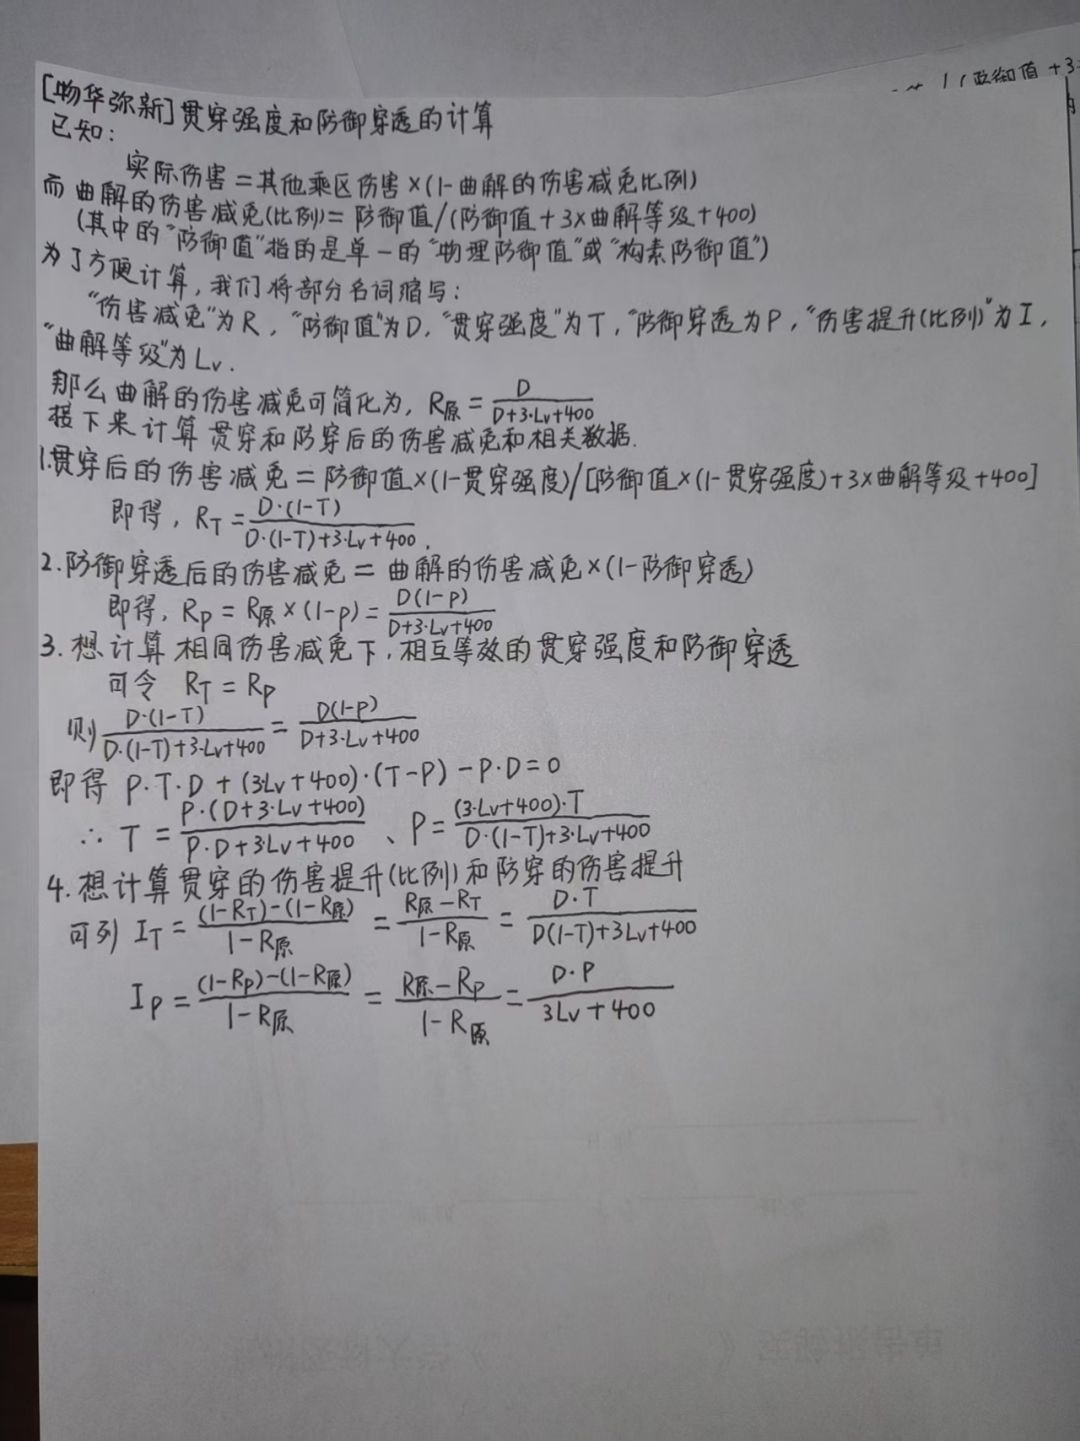 [物华弥新]贯穿强度和防御穿透的计算
已知:
实际伤害=其他乘区伤害×(1-曲解的伤害减免比例)
而曲解的伤害减免(比例)=防御值/(防御值+3×曲解等级+400)
(其中的"防御值"指的是单一的"物理防御值"或"构素防御值")
为了方便计算,我们将部分名词缩写:
"伤害减免"为R,"防御值"为D,"贯穿强度"为T,"防御穿透为P,"伤害提升(比例)"为I,
"曲解等级"为Lv.
那么曲解的伤害减免可简化为, R原 = D / (D+3·Lv+400)
接下来计算贯穿和防穿后的伤害减免和相关数据.
1.贯穿后的伤害减免=防御值×(1-贯穿强度)/[防御值×(1-贯穿强度)+3×曲解等级+400]
即得, RT = D·(1-T) / (D·(1-T)+3·Lv+400).
2.防御穿透后的伤害减免=曲解的伤害减免×(1-防御穿透)
即得, Rp = R原×(1-p) = D(1-p) / (D+3·Lv+400)
3.想计算相同伤害减免下,相互等效的贯穿强度和防御穿透
可令 RT = Rp
则 D·(1-T) / (D·(1-T)+3·Lv+400) = D(1-p) / (D+3·Lv+400)
即得 P·T·D+(3Lv+400)·(T-P)-P·D=0
∴ T = P·(D+3·Lv+400) / (P·D+3Lv+400) 、P = (3·Lv+400)·T / (D·(1-T)+3·Lv+400)
4.想计算贯穿的伤害提升(比例)和防穿的伤害提升
可列 IT = ((1-RT)-(1-R原)) / (1-R原) = (R原-RT) / (1-R原) = D·T / (D(1-T)+3Lv+400)
IP = ((1-Rp)-(1-R原)) / (1-R原) = (R原-Rp) / (1-R原) = D·P / (3Lv+400)
(防御值+3